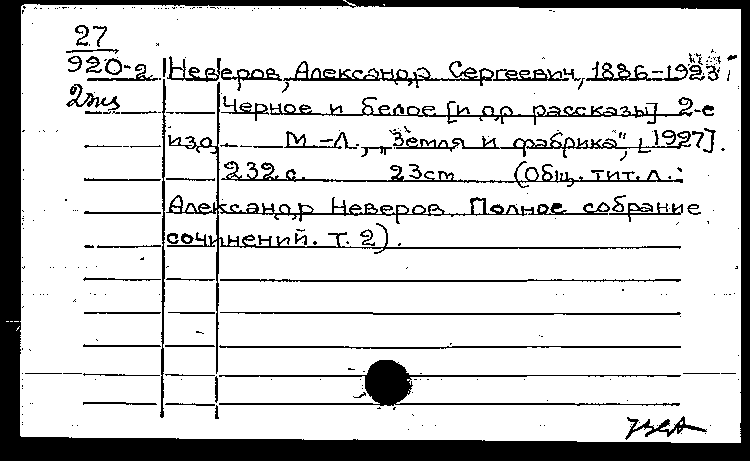 27
920-2 Неверов, Александр Сергеевич, 1886-1923
2экз Черное и белое [и др. рассказы] 2-е
изд. М.-Л., „Земля и фабрика", [1927].
232 с. 23cm (Общ. тит. л.:
Александр Неверов. Полное собрание
сочинений. Т. 2).